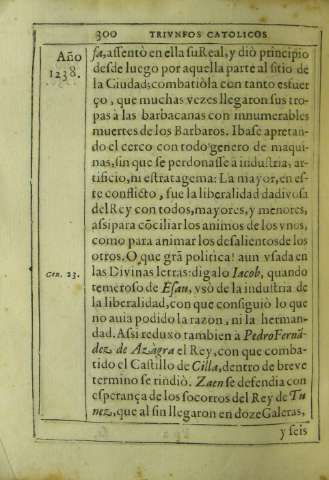 300 TRIVNFOS CATOLICOS
Año
1238.
sa, assentò en ella su Real, y diò principio
desde luego por aquella parte al sitio de
la Ciudad; combatiòla con tanto esfuer
ço, que muchas vezes llegaron sus tro-
pas à las barbacanas con innumerables
muertes de los Barbaros. Ibase apretan-
do el cerco con todo genero de maqui-
nas, sin que se perdonasse à industria, ar-
tificio, ni estratagema: La mayor, en es-
te conflicto, fue la liberalidad dadivosa
del Rey con todos, mayores, y menores,
assi para cõciliar los animos de los vnos,
como para animar los desalientos de los
otros. O que grã politica! aun vsada en
Gen. 23.
las Divinas letras: digalo Iacob, quando
temeroso de Esau, vsò de la industria de
la liberalidad, con que consiguiò lo que
no auia podido la razon, ni la herman-
dad. Assi reduxo tambien à Pedro Fernã-
dez de Azagra el Rey, con que comba-
tido el Castillo de Cilla, dentro de breve
termino se rindiò. Zaen se defendia con
esperança de los socorros del Rey de Tu-
nez, que al fin llegaron en doze Galeras,
y seis